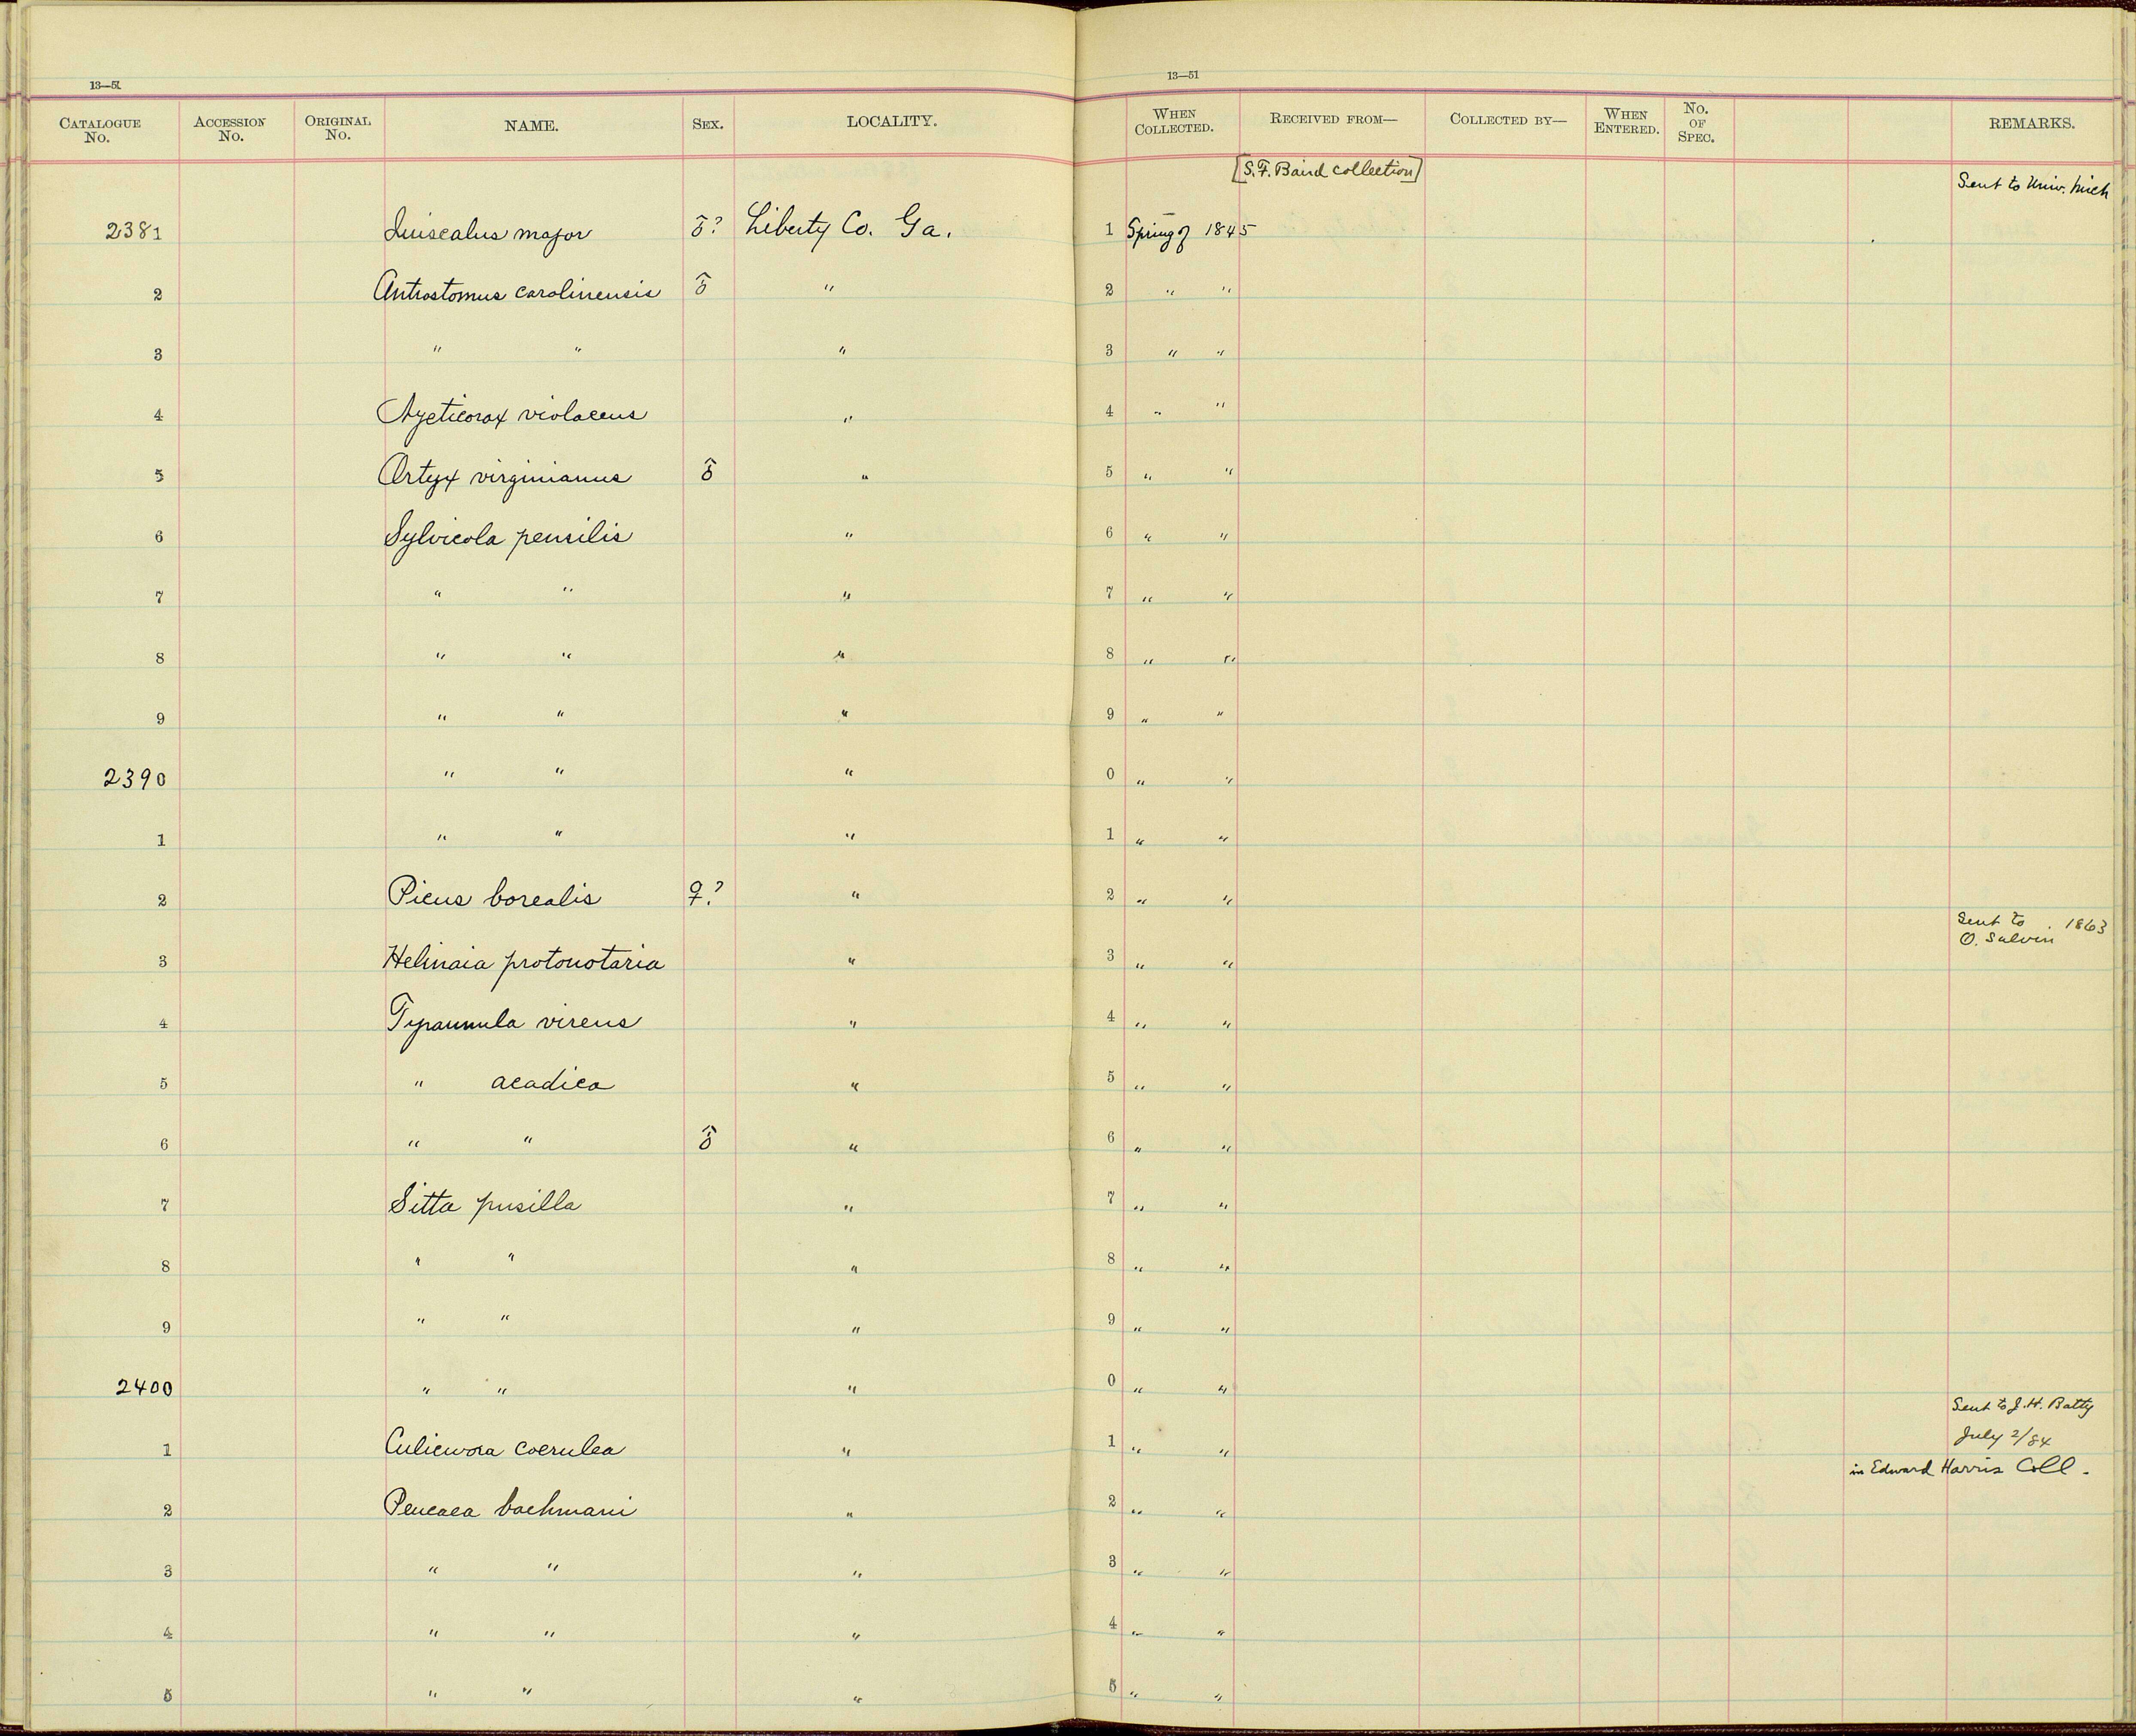 13—51
13—51
CATALOGUE No. ACCESSION No. ORIGINAL No. NAME. SEX. LOCALITY. WHEN COLLECTED. RECEIVED FROM— COLLECTED BY— WHEN ENTERED. No. OF SPEC. REMARKS.
[S. F. Baird collection]
Sent to Univ. Mich
2381 Quiscalus major ♂? Liberty Co. Ga. 1 Spring of 1845
2 Antrostomus carolinensis ♂ " 2 " "
3 " " " 3 " "
4 Nycticorax violaceus " 4 " "
5 Ortyx virginianus ♂ " 5 " "
6 Sylvicola pensilis " 6 " "
7 " " " 7 " "
8 " " " 8 " "
9 " " " 9 " "
2390 " " " 0 " "
1 " " " 1 " "
2 Picus borealis ♀? " 2 " "
Sent to O. Salvin. 1863
3 Helinaia protonotaria " 3 " "
4 Tyrannula virens " 4 " "
5 " acadica " 5 " "
6 " " ♂ " 6 " "
7 Sitta pusilla " 7 " "
8 " " " 8 " "
9 " " " 9 " "
2400 " " " 0 " "
Sent to J. H. Batty
July 2/84
1 Culicivora coerulea " 1 " "
in Edward Harris Coll.
2 Peucaea bachmani " 2 " "
3 " " " 3 " "
4 " " " 4 " "
5 " " " 5 " "